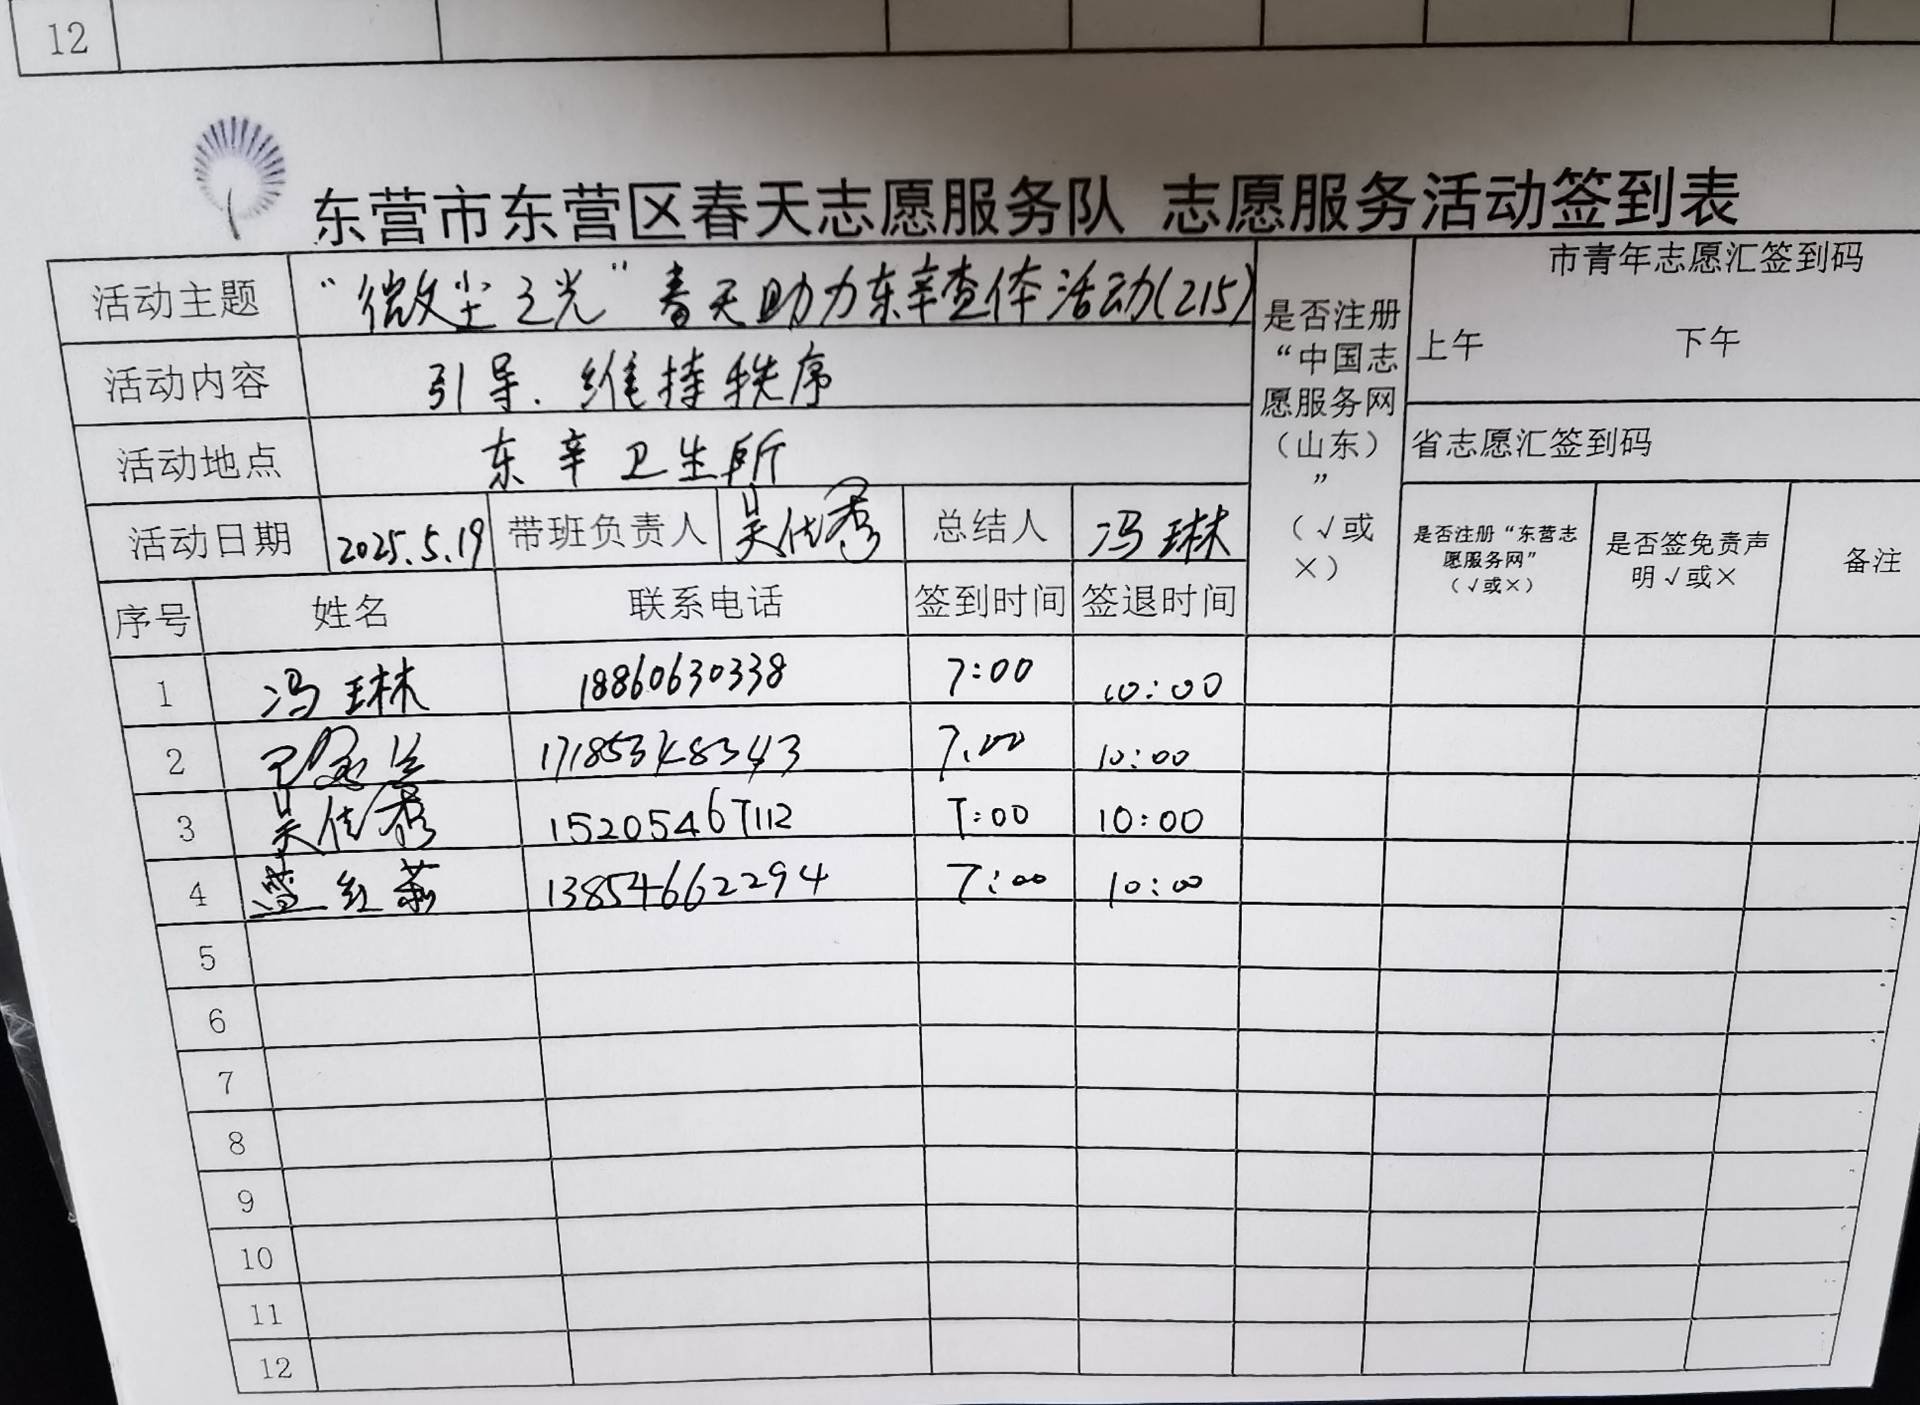 12
东营市东营区春天志愿服务队 志愿服务活动签到表
活动主题 “微尘之光”春天助力东辛查体活动(215)
活动内容 引导、维持秩序
活动地点 东辛卫生所
活动日期 2025.5.19 带班负责人 吴佳秀 总结人 冯琳
是否注册“中国志愿服务网(山东)”(√或×)
市青年志愿汇签到码
上午 下午
省志愿汇签到码
是否注册“东营志愿服务网”(√或×) 是否签免责声明√或× 备注
序号 姓名 联系电话 签到时间 签退时间
1 冯琳 18860630338 7:00 10:00
2 7:00 10:00
3 吴佳秀 15205467112 7:00 10:00
4 红 13854662294 7:00 10:00
5
6
7
8
9
10
11
12